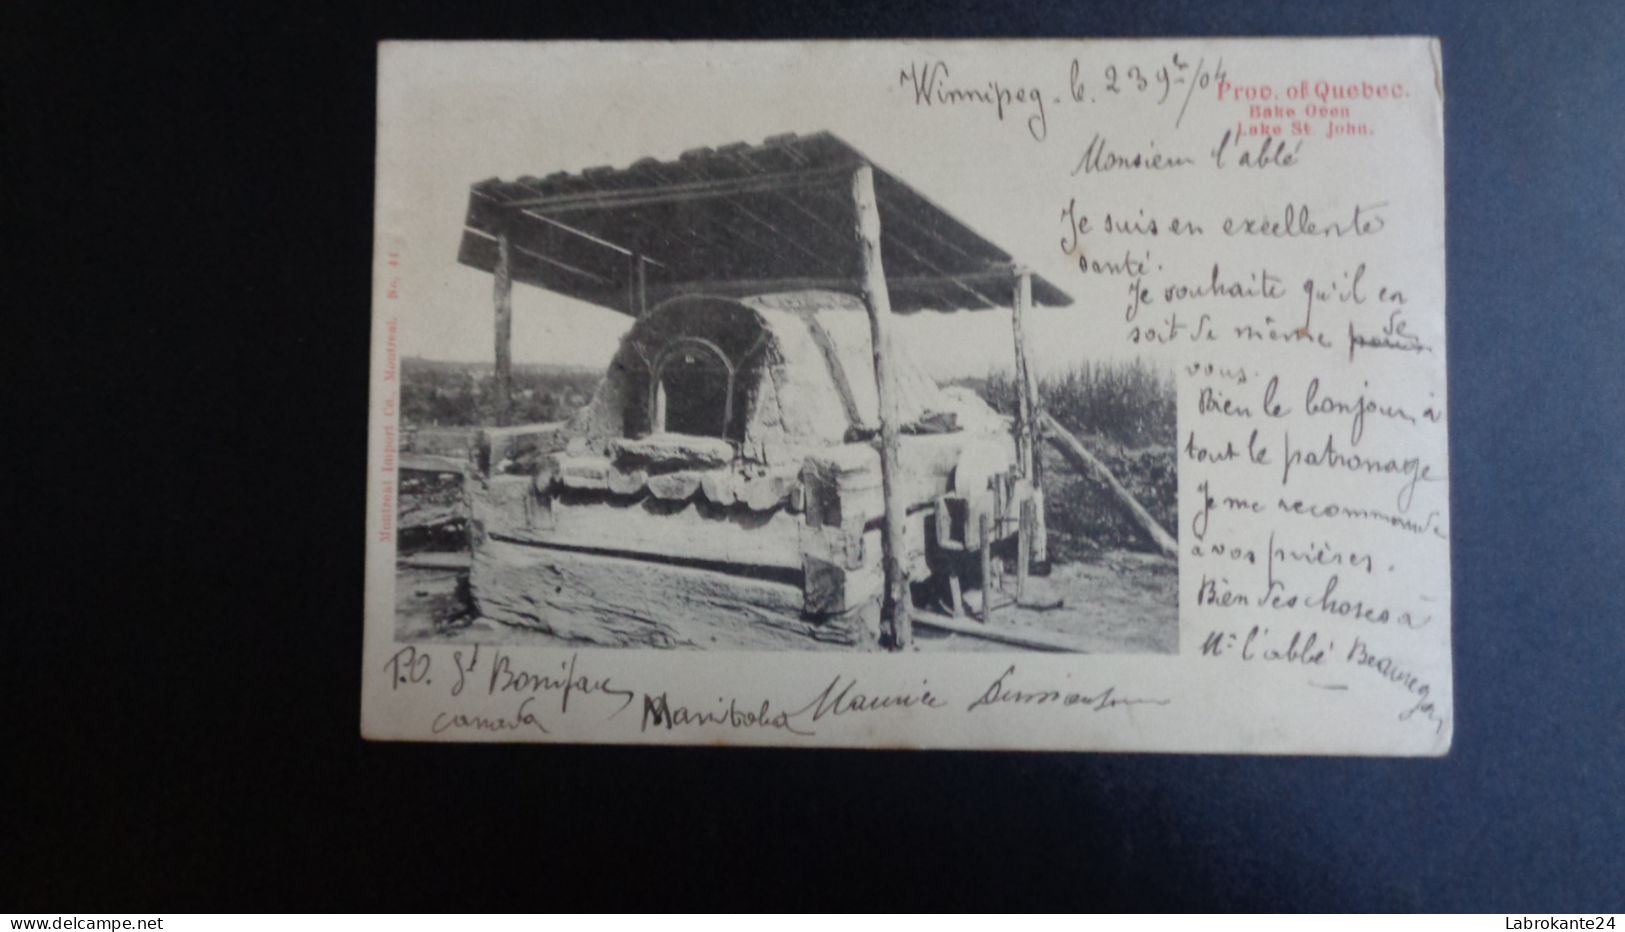 Winnipeg. le. 23 9bre/04
Prov. of Quebec.
Bake Oven
Lake St. John.
Monsieur l'abbé
Je suis en excellente
santé.
Je souhaite qu'il en
soit de même de
vous.
Bien le bonjour à
tout le patronage
Je me recommande
à vos prières.
Bien des choses à
Mr l'abbé Beauregard
P.O. St Boniface
Manitoba Maurice
Canada
Montreal Import Co., Montreal. No. 44
Labrokante24